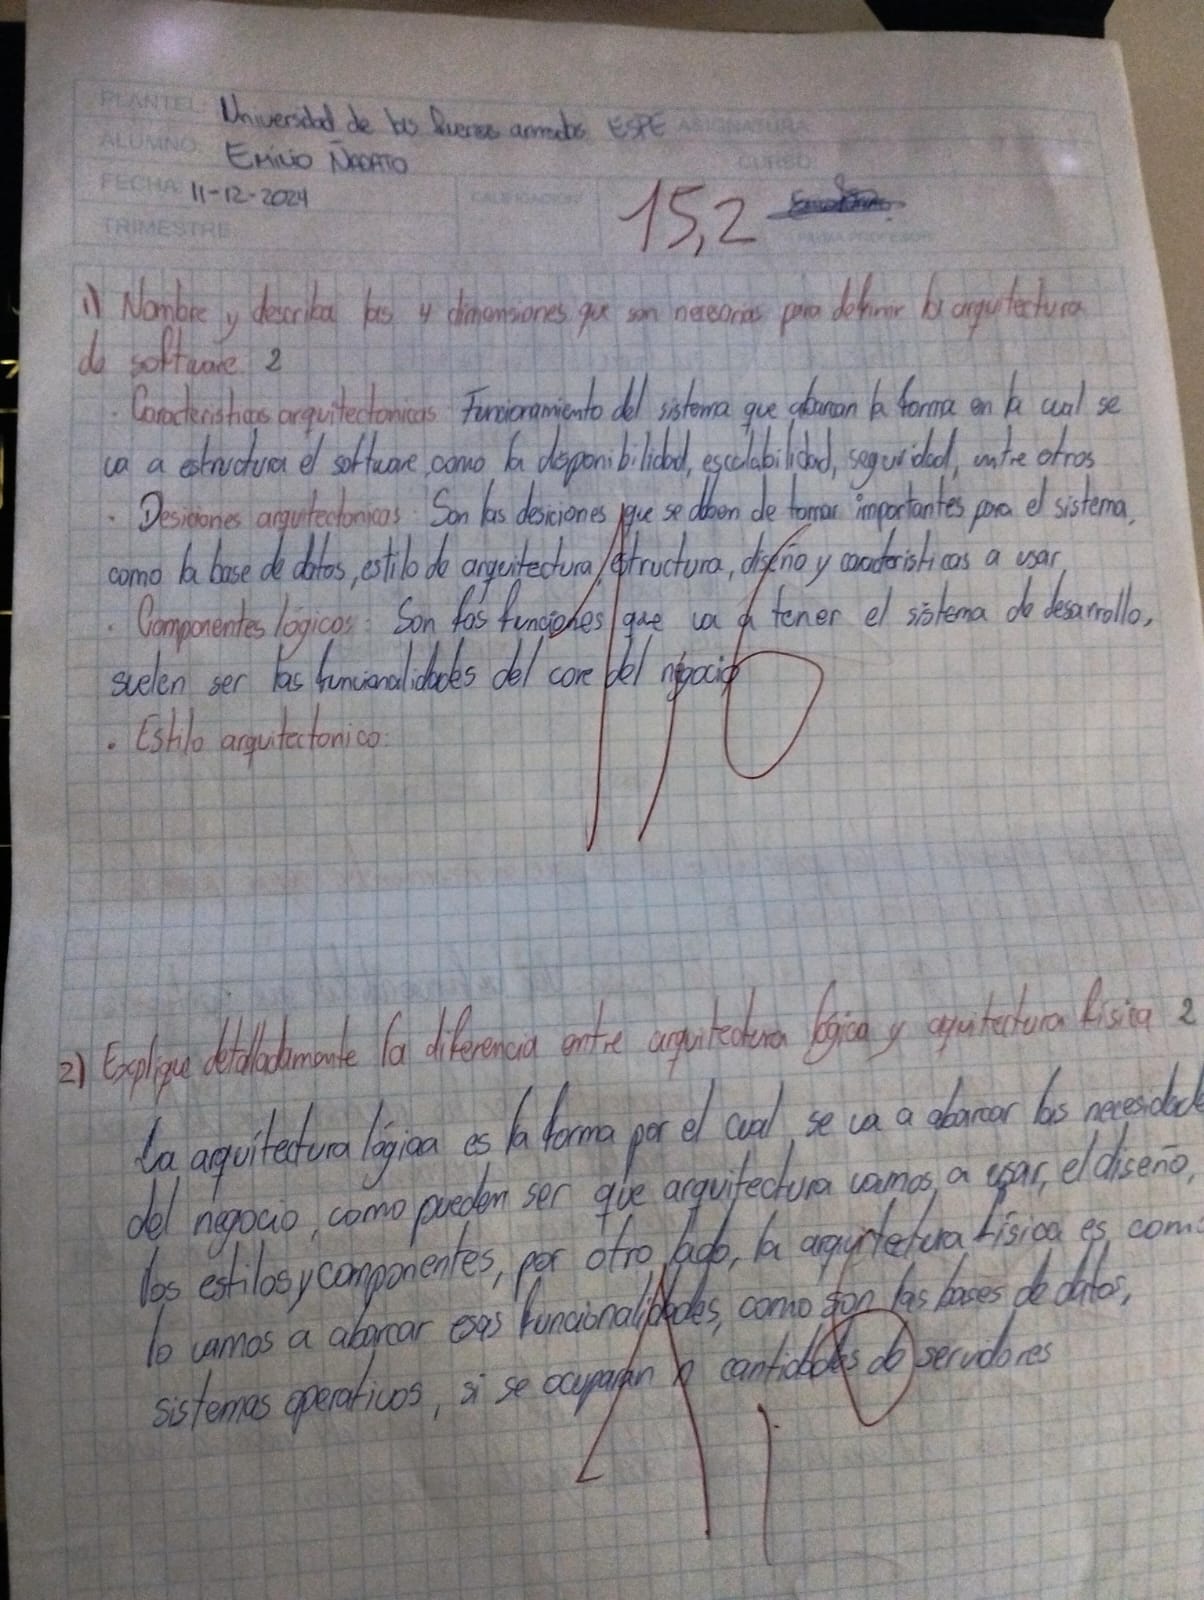 PLANTEL: Universidad de las fuerzas armadas ESPE ASIGNATURA:
ALUMNO: EMILIO ÑACATO CURSO:
FECHA: 11-12-2024 CALIFICACIÓN
15,2
TRIMESTRE: FIRMA PROFESOR
1) Nombre y describa las 4 dimensiones que son necesarias para definir la arquitectura
de software. 2
· Caracteristicas arquitectonicas Funcionamiento del sistema que abarcan la forma en la cual se
va a estructura el software, como la disponibilidad, escalabilidad, seguridad, entre otros
· Desiciones arquitectonicas: Son las desiciones que se deben de tomar importantes para el sistema,
como la base de datos, estilo de arquitectura, estructura, diseño y caracteristicas a usar,
· Componentes lógicos: Son las funciones que va a tener el sistema de desarrollo,
suelen ser las funcionalidades del core del negocio
· Estilo arquitectonico:
1,6
2) Explique detalladamente la diferencia entre arquitectura lógica y arquitectura física 2
La arquitectura lógica es la forma por el cual se va a abarcar las necesidade
del negocio, como pueden ser que arquitectura vamos a usar, el diseño,
los estilos y componentes, por otro lado, la arquitetura física es como
lo vamos a abarcar esas funcionalidades, como son las bases de datos,
sistemas operativos, si se ocuparan n cantidades de servidores